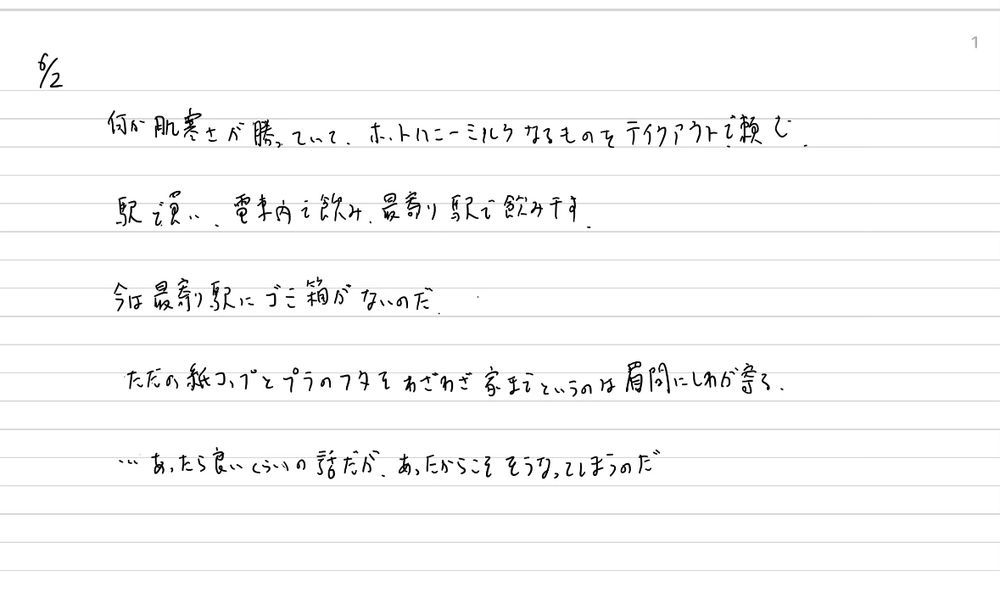 1
6/2
何か肌寒さが勝っていて、ホットハニーミルクなるものをテイクアウトで頼む、
駅で買い、電車内で飲み、最寄り駅で飲み干す、
今は最寄り駅にゴミ箱がないのだ、
ただの紙コップとプラのフタをわざわざ家までというのは眉間にしわが寄る、
…あったら良いくらいの話だが、あったからこそそうなってしまうのだ